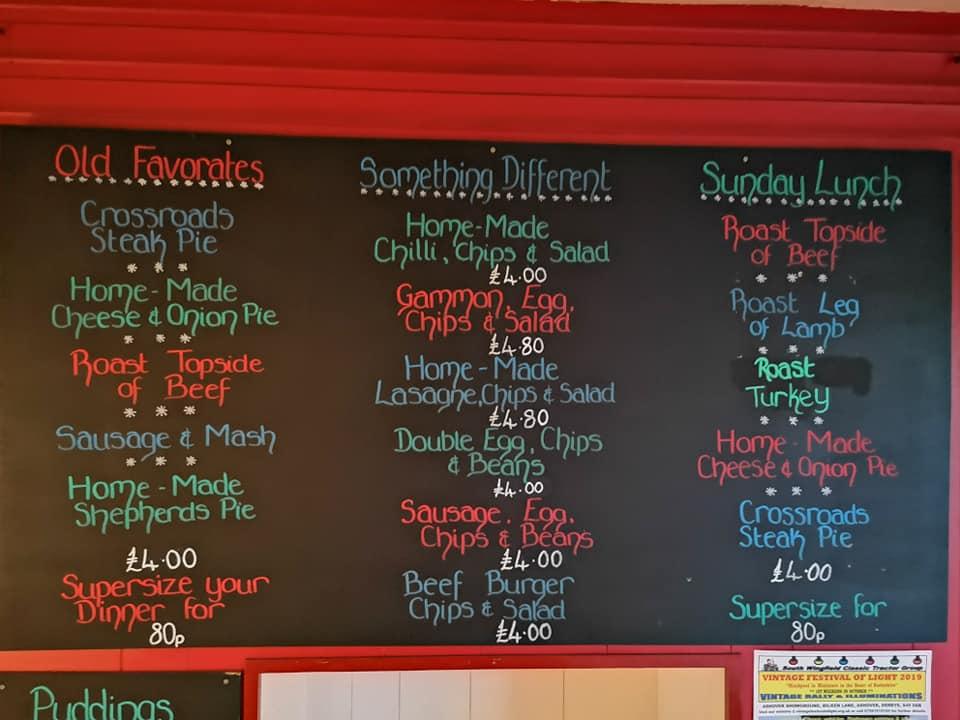 Old Favorates
Crossroads
Steak Pie
* * *
Home-Made
Cheese & Onion Pie
* * *
Roast Topside
of Beef
* * *
Sausage & Mash
* * *
Home-Made
Shepherds Pie
£4.00
Supersize your
Dinner for
80p
Something Different
Home-Made
Chilli, Chips & Salad
£4.00
Gammon, Egg,
Chips & Salad
£4.80
Home-Made
Lasagne, Chips & Salad
£4.80
Double Egg, Chips
& Beans
£4.00
Sausage, Egg,
Chips & Beans
£4.00
Beef Burger
Chips & Salad
£4.00
Sunday Lunch
Roast Topside
of Beef
* * *
Roast Leg
of Lamb
* * *
Roast
Turkey
* * *
Home-Made
Cheese & Onion Pie
* * *
Crossroads
Steak Pie
£4.00
Supersize for
80p
Puddings
South Wingfield Classic Tractor Group
VINTAGE FESTIVAL OF LIGHT 2019
VINTAGE RALLY & ILLUMINATIONS